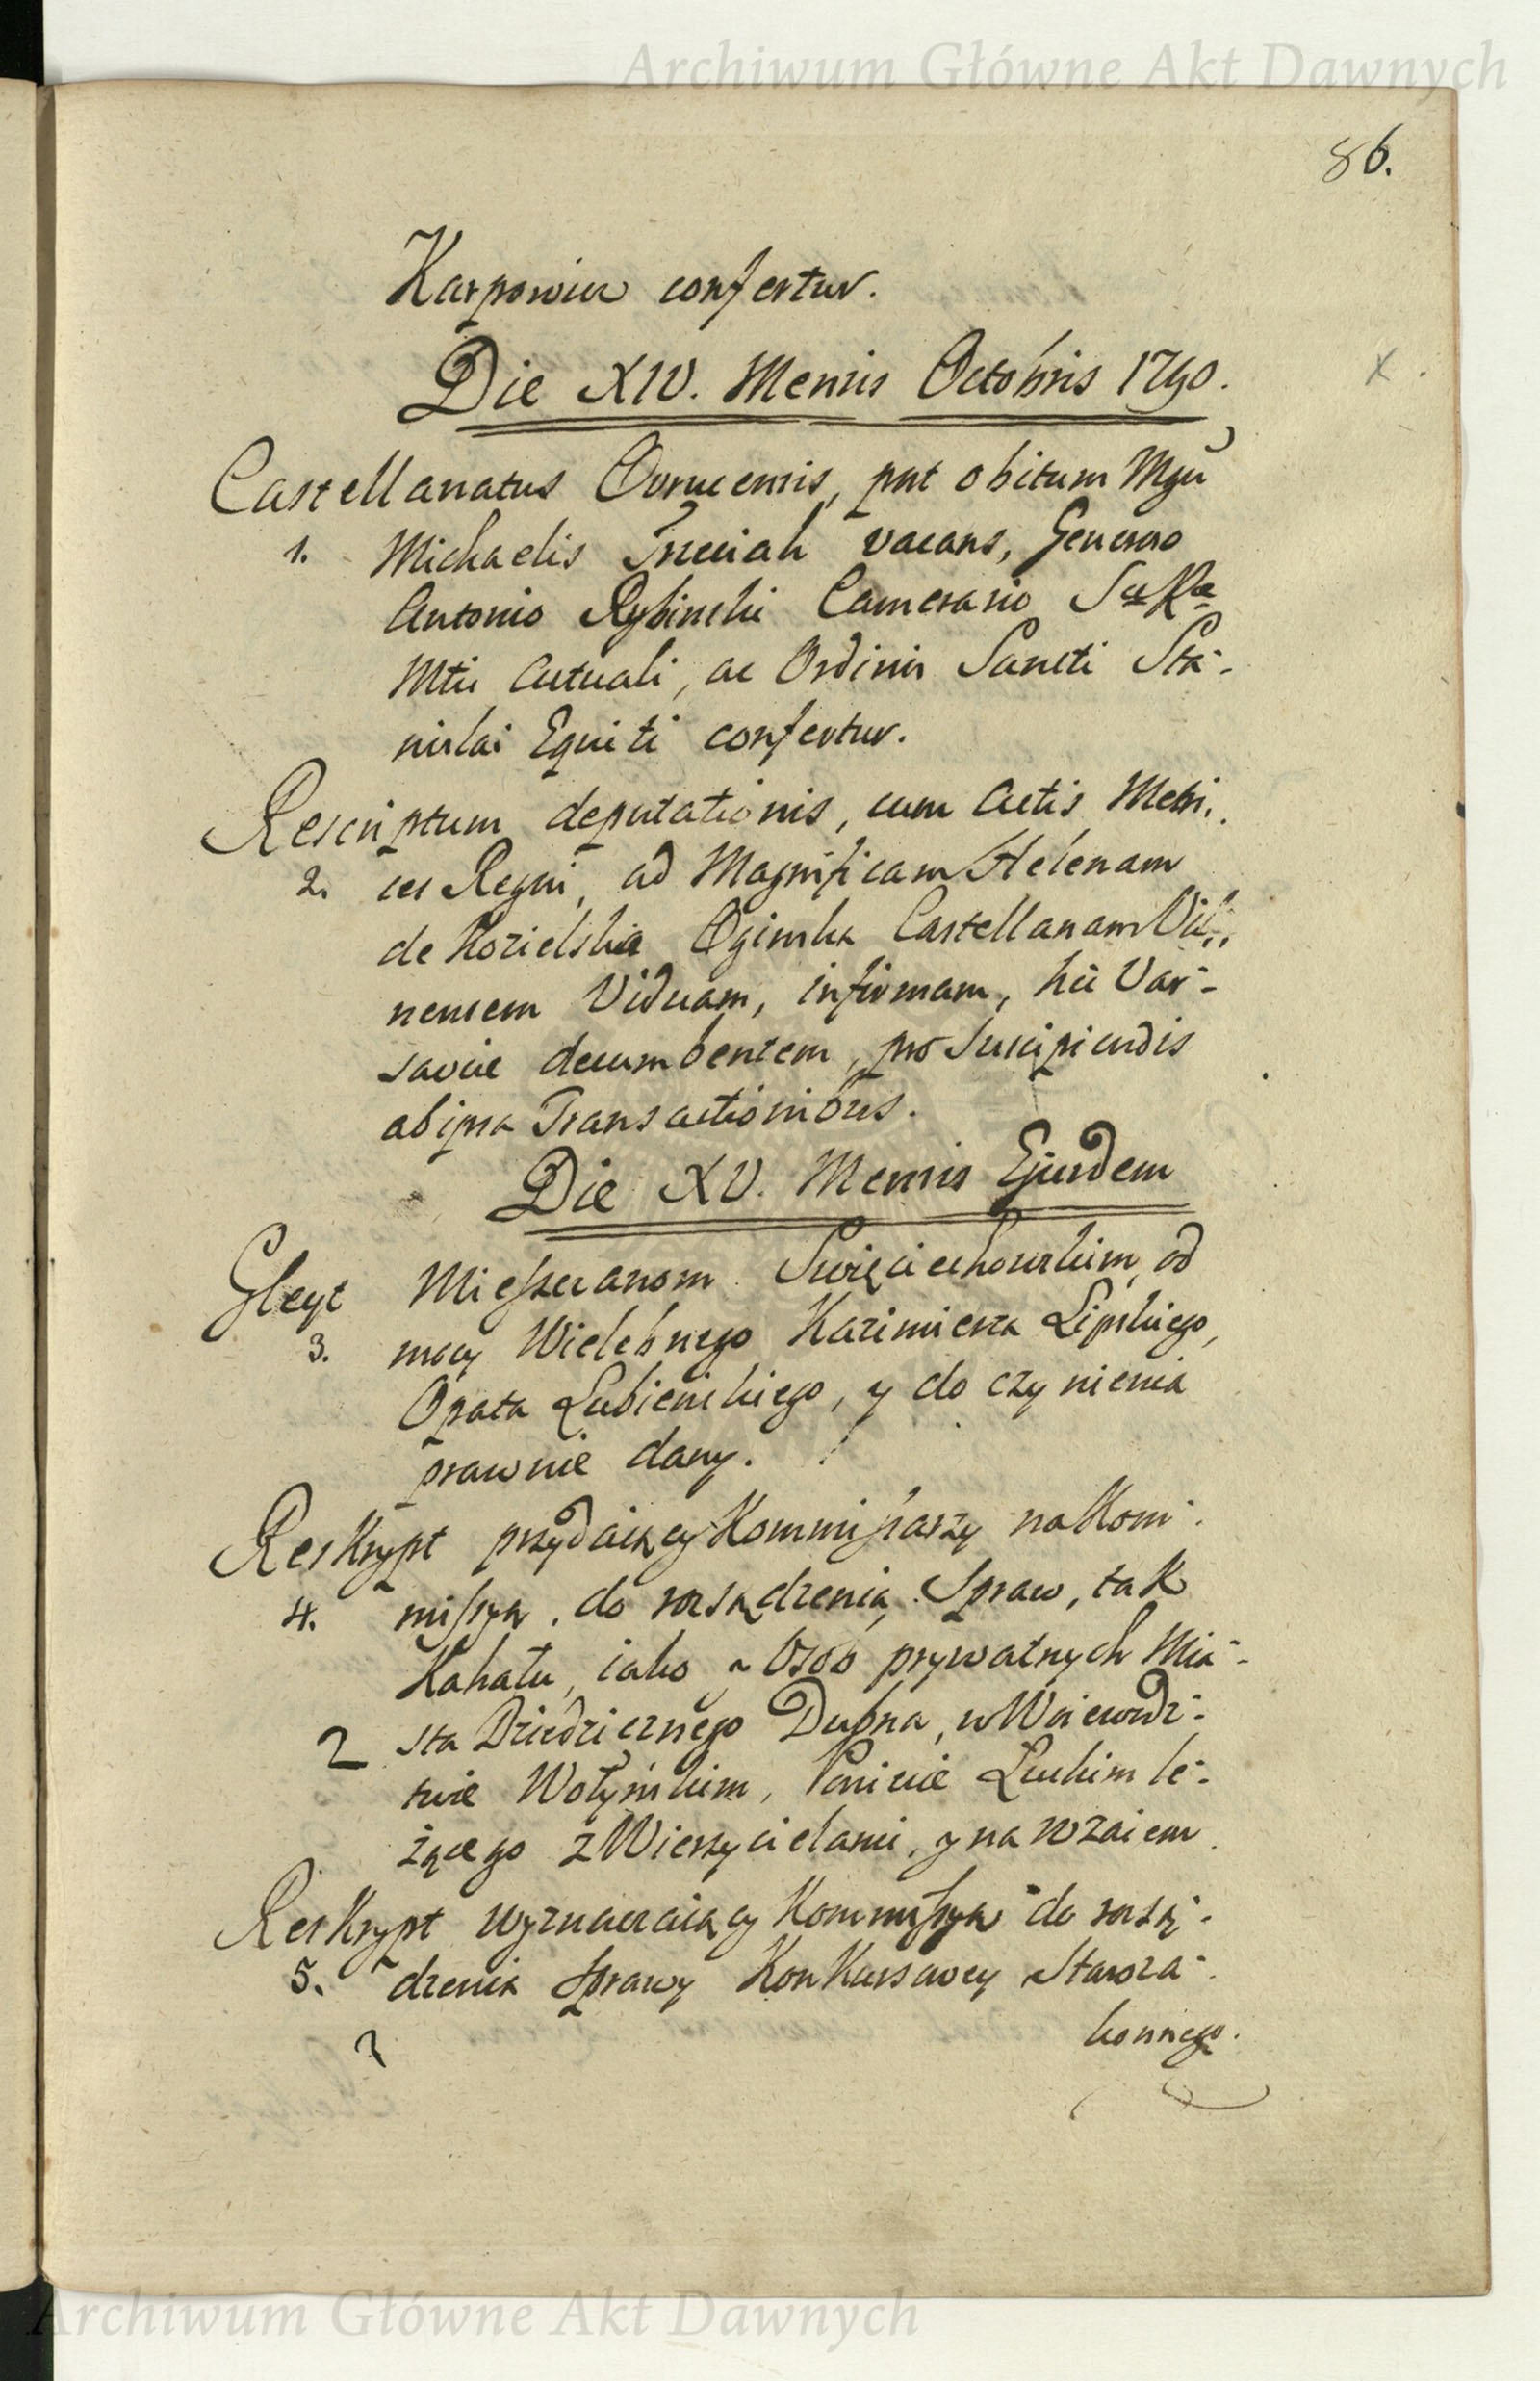 Archiwum Główne Akt Dawnych
86.
Karpowicz confertur.
Die XIV. Mensis Octobris 1790.
Castellanatus Ovrucensis, post obitum Mgci
1. Michaelis Trzeciak vacans, Generoso
Antonio Rybinski Camerario Sæ Ræ
Mtis Actuali, ac Ordinis Sancti Sta-
nislai Equiti confertur.
Rescriptum deputationis, cum Actis Metri-
2. ces Regni, ad Magnificam Helenam
de Kozielska Oginska Castellanam Vil-
nensem Viduam, infirmam, hic Var-
saviæ decumbentem, pro suscipiendis
ab ipsa Transactionibus.
Die XV. Mensis Ejusdem
Gleyt Mieszczanom Swięciechowskim, od
3. mocy Wielebnego Kazimierza Lipskiego,
Opata Lubieńskiego, y do czynienia
prawnie dany.
Reskrypt przydaiący Kommissarzy na Kom-
4. missyą, do rozsądzenia Spraw, tak
Kahału, iako y Osób prywatnych Mia-
2 sta Dziedzicznego Dubna, w Woiewodz-
twie Wołyńskim, Powiecie Łuckim le-
żącego z Wierzycielami, y na wzaiem
Reskrypt wyznaczaiący Kommissyą do rozsą-
5. dzenia Sprawy Konkursowey Staroza-
2 konnego.
Archiwum Główne Akt Dawnych